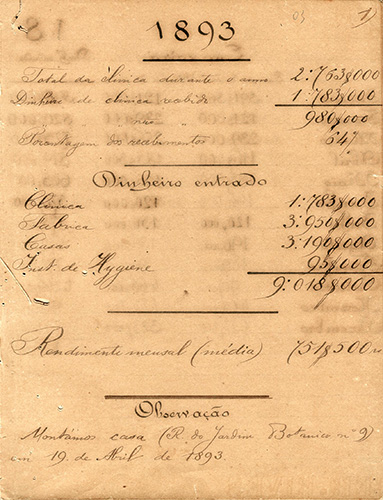 1893
Total da clinica durante o anno 2:763$000
Dinheiro de clinica recebido 1:783$000
" 980$000
Porcentagem dos recebimentos
Dinheiro entrado
Clinica 1:783$000
3:950$000
Casas 3:190$000
Inst. de Hygiene 95$000
9:018$000
Rendimento mensal (média) 751$500
Observação
Montámos casa (R. do Jardim Botanico nº 9)
em 19 de Abril de 1893.